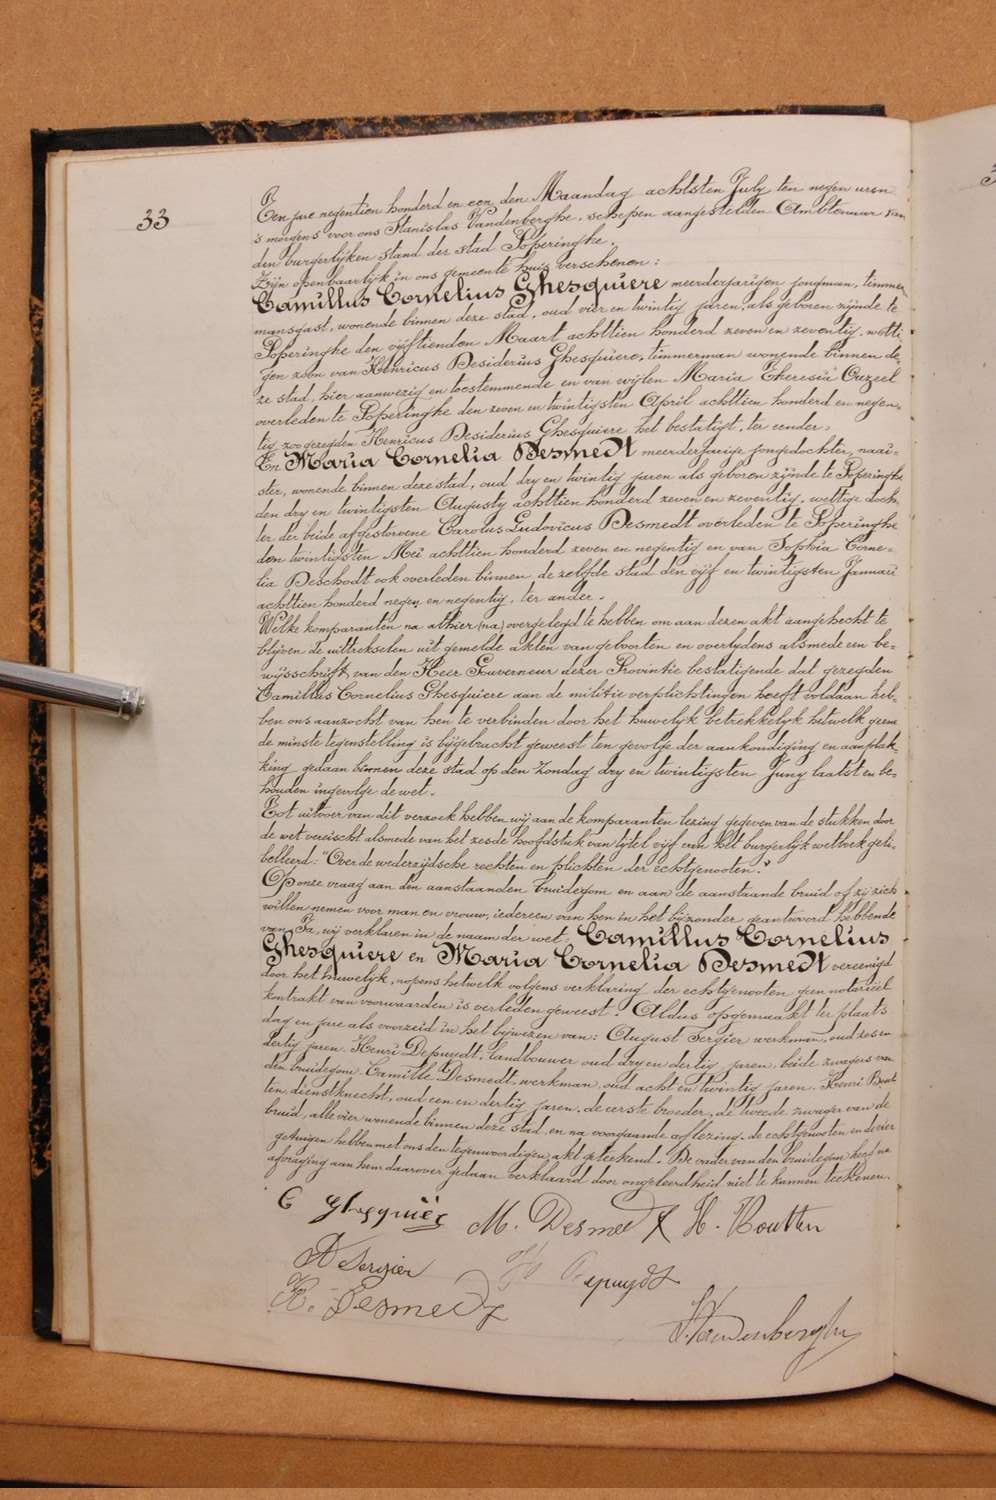 33
Ten jare negentien honderd en een den Maandag achtsten July ten negen uren
's morgens voor ons Stanislas Vandenberghe, schepen aangestelden Ambtenaar van
den burgerlijken stand der stad Poperinghe.
Zijn openbaarlyk in ons gemeente huis verschenen:
Camillus Cornelius Ghesquiere meerderjarigen jongman, timmer
mansgast, wonende binnen deze stad, oud vier en twintig jaren, als geboren zijnde te
Poperinghe den vijftienden Maart achttien honderd zeven en zeventig, wetti-
gen zoon van Henricus Desiderius Ghesquiere, timmerman wonende binnen de-
ze stad, hier aanwezig en toestemmende en van wijlen Maria Theresia Cazeel
overleden te Poperinghe den zeven en twintigsten April achttien honderd en negen-
tig zoo gezegden Henricus Desiderius Ghesquiere het bestatigt, ter eender=
En Maria Cornelia Desmedt meerderjarige jongedochter, naai=
ster, wonende binnen deze stad, oud dry en twintig jaren als geboren zijnde te Poperinghe
den dry en twintigsten Augusty achttien honderd zeven en zeventig, wettige doch-
ter der beide afgestorvene Carolus Ludovicus Desmedt overleden te Poperinghe
den twintigsten Mei achttien honderd zeven en negentig en van Sophia Corne=
lia Deschodt ook overleden binnen de zelfde stad den vijf en twintigsten Januari
achttien honderd negen en negentig, ter ander.
Welke komparanten na althier (na) overgelegd te hebben om aan dezen akt aangehecht te
blijven de uittrekselen uit gemelde akten van geboorten en overlydens alsmede een be=
wijsschrift van den Heer Gouverneur dezer Provintie bestatigende dat gezegden
Camillus Cornelius Ghesquiere aan de militie verplichtingen heeft voldaan heb-
ben ons aanzocht van hen te verbinden door het huwelyk betrekkelyk hetwelk geene
de minste tegenstelling is bijgebracht geweest ten gevolge der aankondiging en aanplak-
king gedaan binnen deze stad op den Zondag dry en twintigsten Juny laatst en be=
houden ingevolge de wet.
Tot uitvoer van dit verzoek hebben wij aan de komparanten lezing gegeven van de stukken door
de wet vereischt alsmede van het zesde hoofdstuk van tytel vijf van het burgerlyk wetboek geti-
belleerd: "Over de wederzijdsche rechten en plichten der echtgenooten."
Op onze vraag aan den aanstaanden bruidegom en aan de aanstaande bruid of zij zich
willen nemen voor man en vrouw, iedereen van hen in het bijzonder geantwoord hebbende
van Ja, wij verklaren in de naam der wet, Camillus Cornelius
Ghesquiere en Maria Cornelia Desmedt vereenigd
door het huwelijk, nopens hetwelk volgens verklaring der echtgenooten geen notarieel
kontrakt van voorwaarden is verleden geweest. Aldus opgemaakt ter plaats
dag en jare als voorzeid in het bijwezen van: August Sergier werkman, oud zes en
dertig jaren. Henri Depuydt, landbouwer oud dry en dertig jaren, beide zwagers van
den bruidegom. Camille Desmedt, werkman, oud acht en twintig jaren. Henri Bout
ten, dienstknecht, oud een en dertig jaren, de eerste broeder, de tweede zwager van de
bruid, alle vier wonende binnen deze stad, en na voorgaande aflezing, de echtgenooten en de vier
getuigen hebben met ons den tegenwoordigen akt geteekend. De vader van den bruidegom heeft na
afvraging aan hem daarover gedaan verklaard door ongeleerdheid niet te kunnen teekenen.
C Ghesquiere M. Desmedt H. Boutten
A Sergier H Depuydt
K. Desmedt
S. Vandenberghe